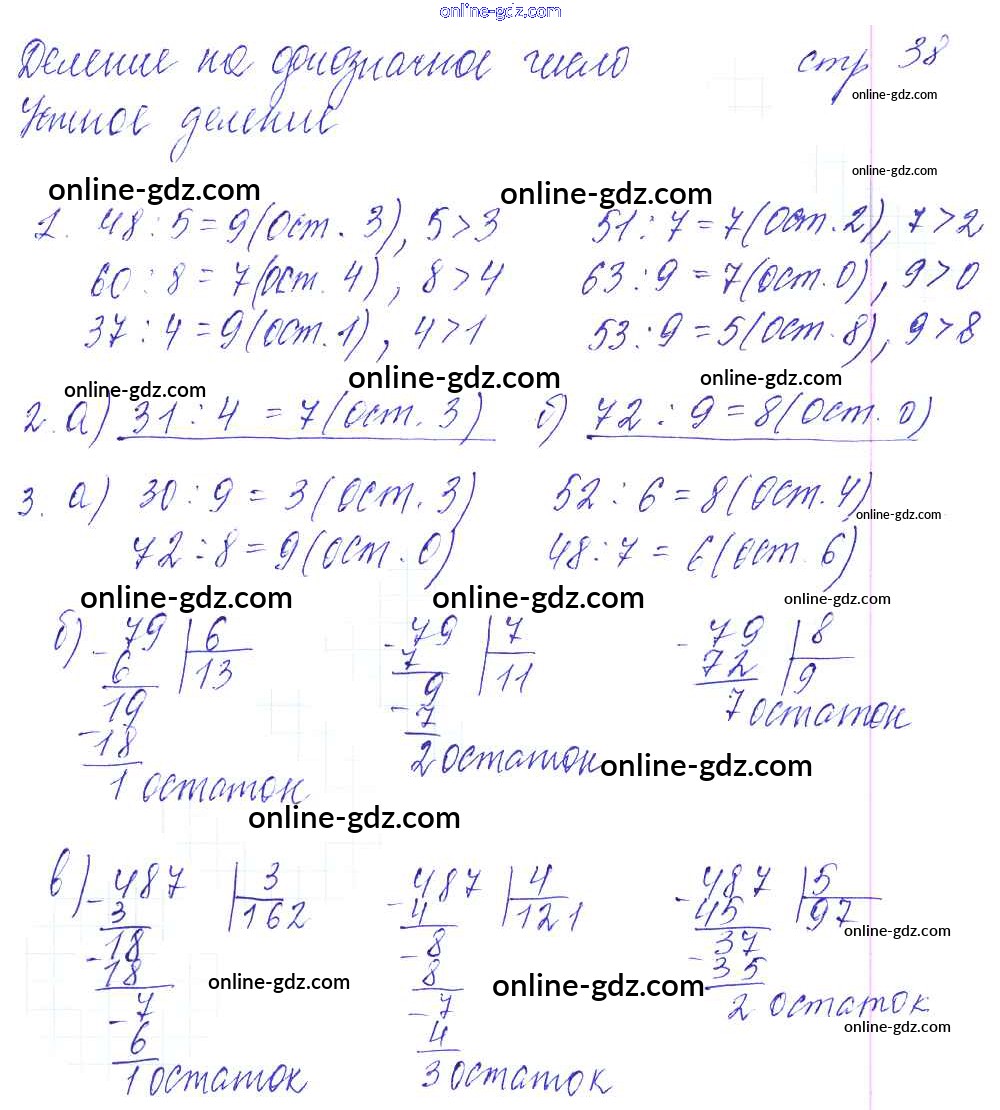 online-gdz.com
Деление на однозначное число стр 38
online-gdz.com
Устное деление
online-gdz.com
online-gdz.com online-gdz.com
1. 48 : 5 = 9 (Ост. 3), 5 > 3 51 : 7 = 7 (Ост. 2), 7 > 2
60 : 8 = 7 (ост. 4), 8 > 4 63 : 9 = 7 (ост. 0), 9 > 0
37 : 4 = 9 (ост. 1), 4 > 1 53 : 9 = 5 (Ост. 8), 9 > 8
online-gdz.com online-gdz.com online-gdz.com
2. а) 31 : 4 = 7 (Ост. 3) б) 72 : 9 = 8 (Ост. 0)
3. а) 30 : 9 = 3 (Ост. 3) 52 : 6 = 8 (Ост. 4)
online-gdz.com
72 : 8 = 9 (Ост. 0) 48 : 7 = 6 (Ост. 6)
online-gdz.com online-gdz.com online-gdz.com
б) - 79 | 6 - 79 | 7 - 79 | 8
6 | 13 7 | 11 72 | 9
19 9 7 остаток
- 18 - 7
1 остаток 2 остаток online-gdz.com
online-gdz.com
в) - 487 | 3 - 487 | 4 - 487 | 5
3 | 162 4 | 121 45 | 97
online-gdz.com
18 8 37
- 18 8 - 35
online-gdz.com online-gdz.com
7 7 2 остаток
online-gdz.com
- 6 - 4
1 остаток 3 остаток